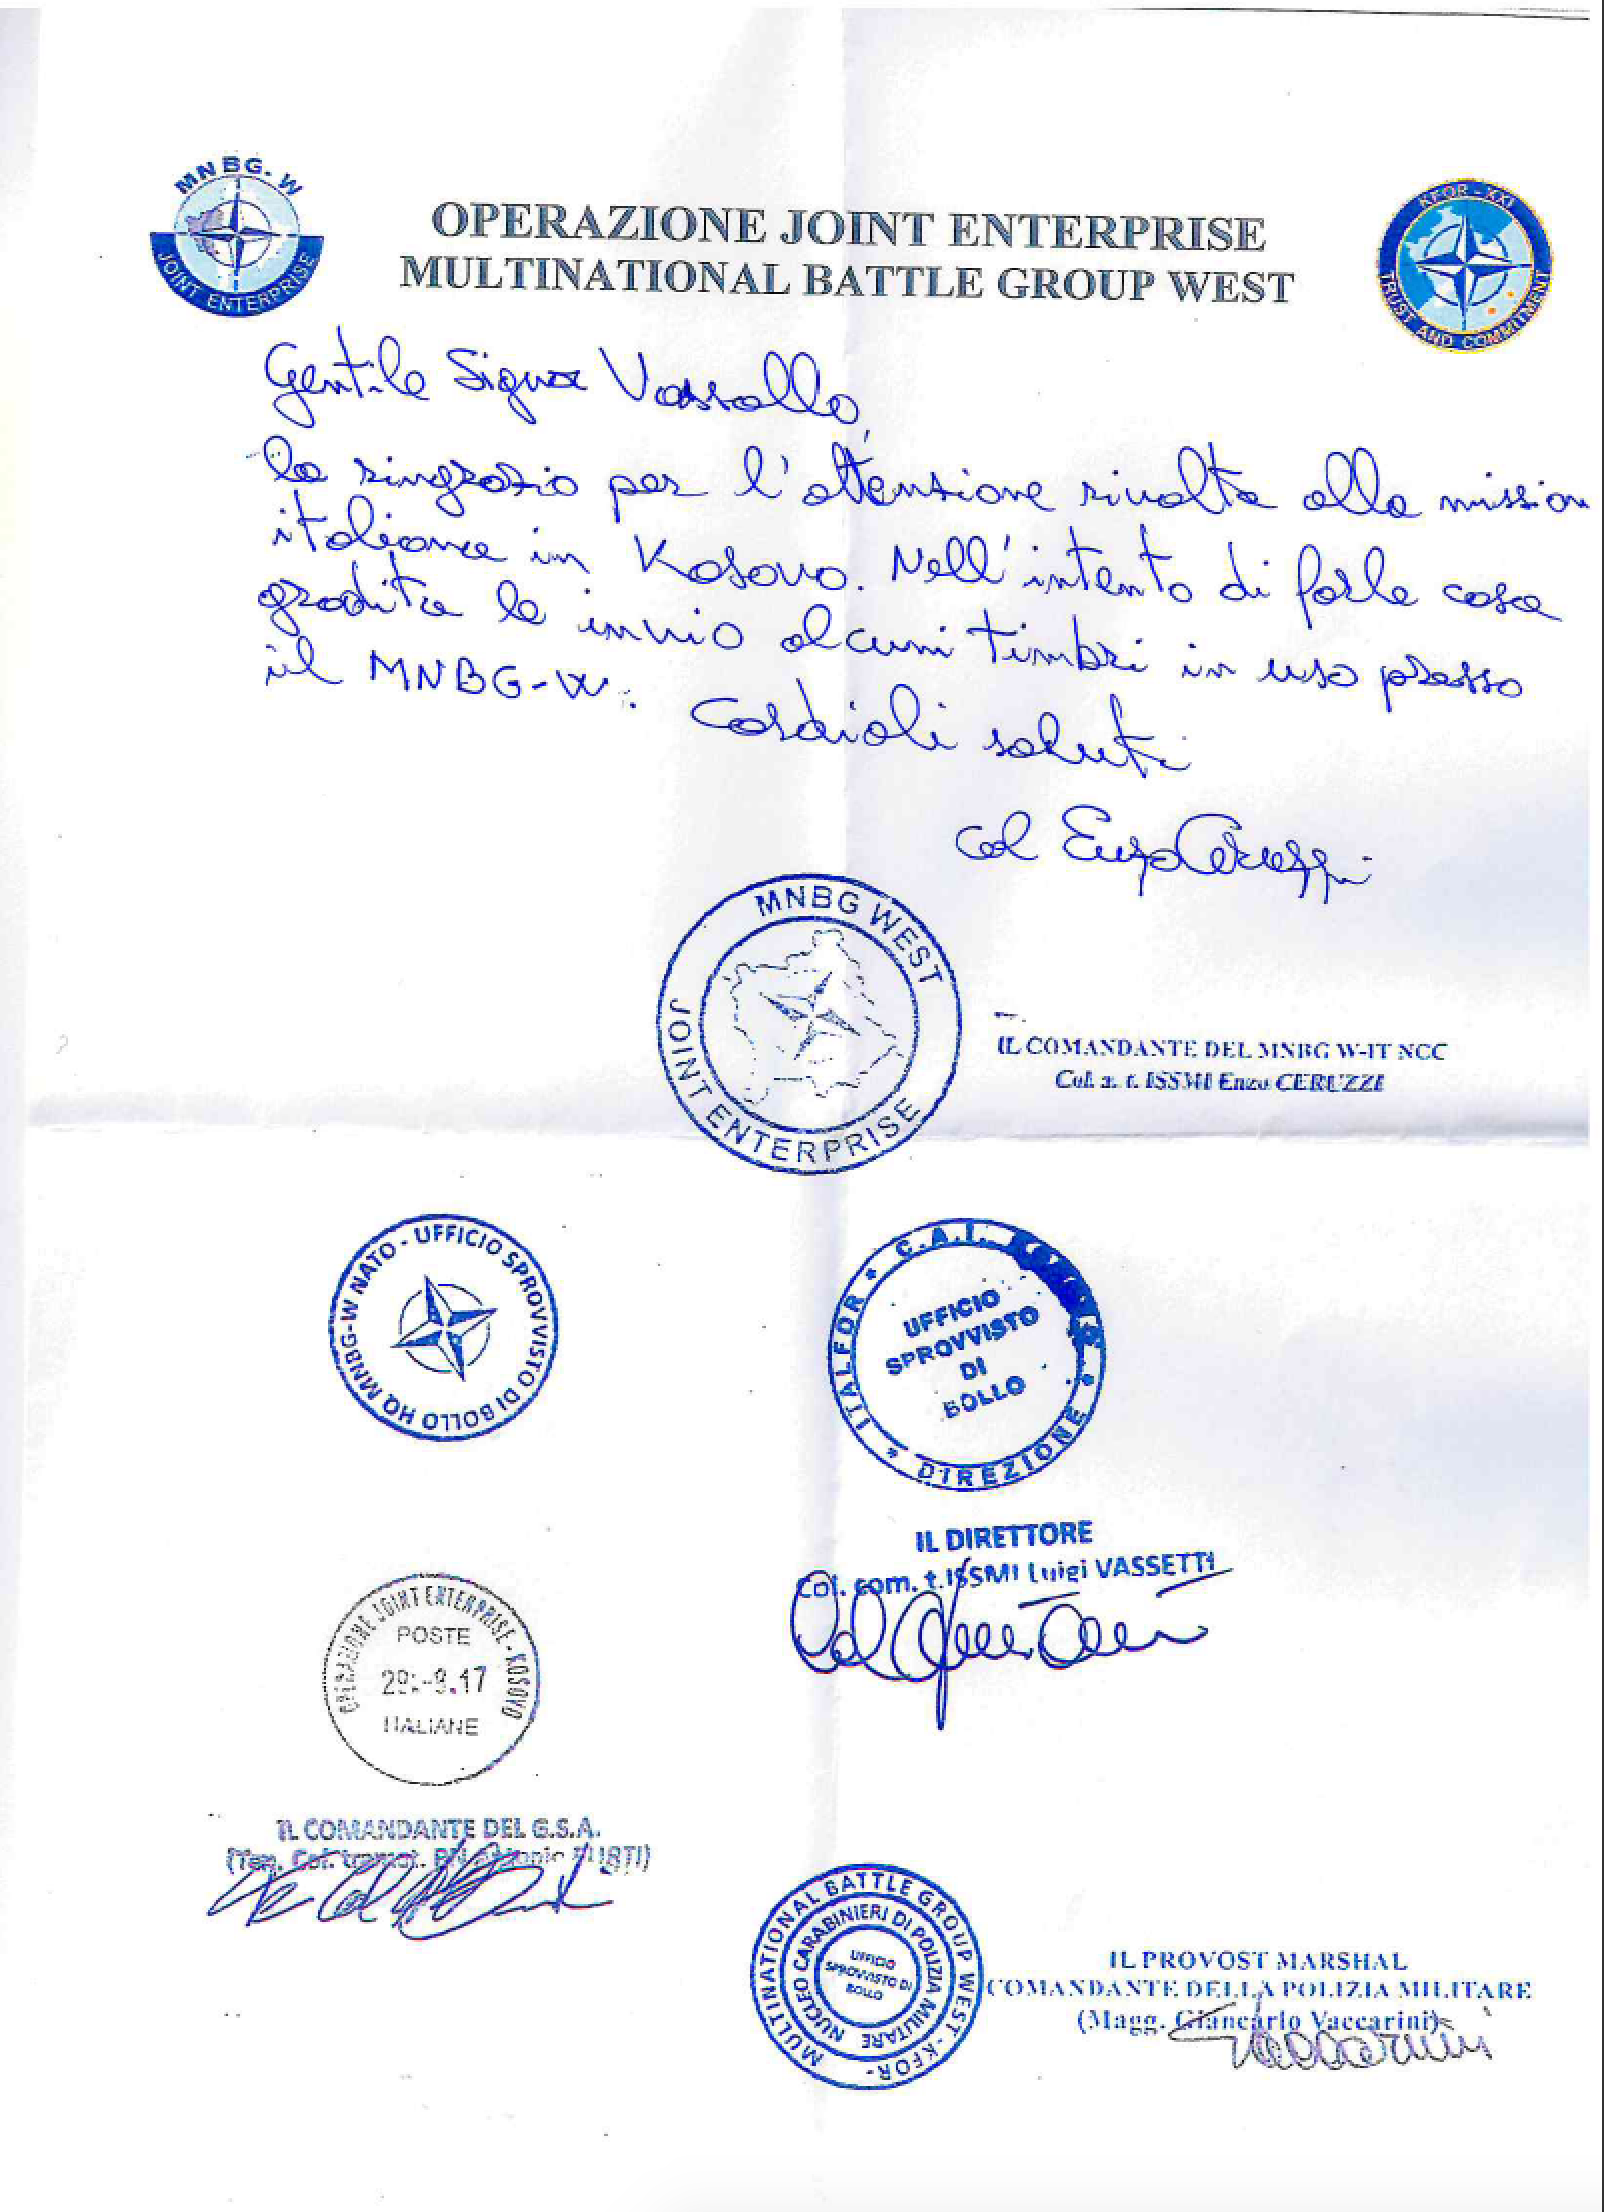 MNBG-W
JOINT ENTERPRISE
OPERAZIONE JOINT ENTERPRISE
MULTINATIONAL BATTLE GROUP WEST
KFOR - XXI
TRUST AND COMMITMENT
Gentile Sig.ra Vassallo,
la ringrazio per l'attenzione rivolta alla mission
italiana in Kosovo. Nell'intento di farle cosa
gradita le invio alcuni timbri in uso presso
il MNBG-W.
Cordiali saluti
Col Enzo Ceruzzi
MNBG WEST
JOINT ENTERPRISE
IL COMANDANTE DEL MNBG W-IT NCC
Col. a. t. ISSMI Enzo CERUZZI
HQ MNBG-W NATO - UFFICIO SPROVVISTO DI BOLLO
ITALFOR * C.A.I.
UFFICIO
SPROVVISTO
DI
BOLLO
* DIREZIONE *
IL DIRETTORE
Col. com. t.ISSMI Luigi VASSETTI
OPERAZIONE JOINT ENTERPRISE - KOSOVO
POSTE
29.-8.17
ITALIANE
IL COMANDANTE DEL G.S.A.
(Ten. Col.
MULTINATIONAL BATTLE GROUP WEST - KFOR-
NUCLEO CARABINIERI DI POLIZIA MILITARE
UFFICIO
SPROVVISTO DI
BOLLO
IL PROVOST MARSHAL
COMANDANTE DELLA POLIZIA MILITARE
(Magg. Giancarlo Vaccarini)
Vaccarini